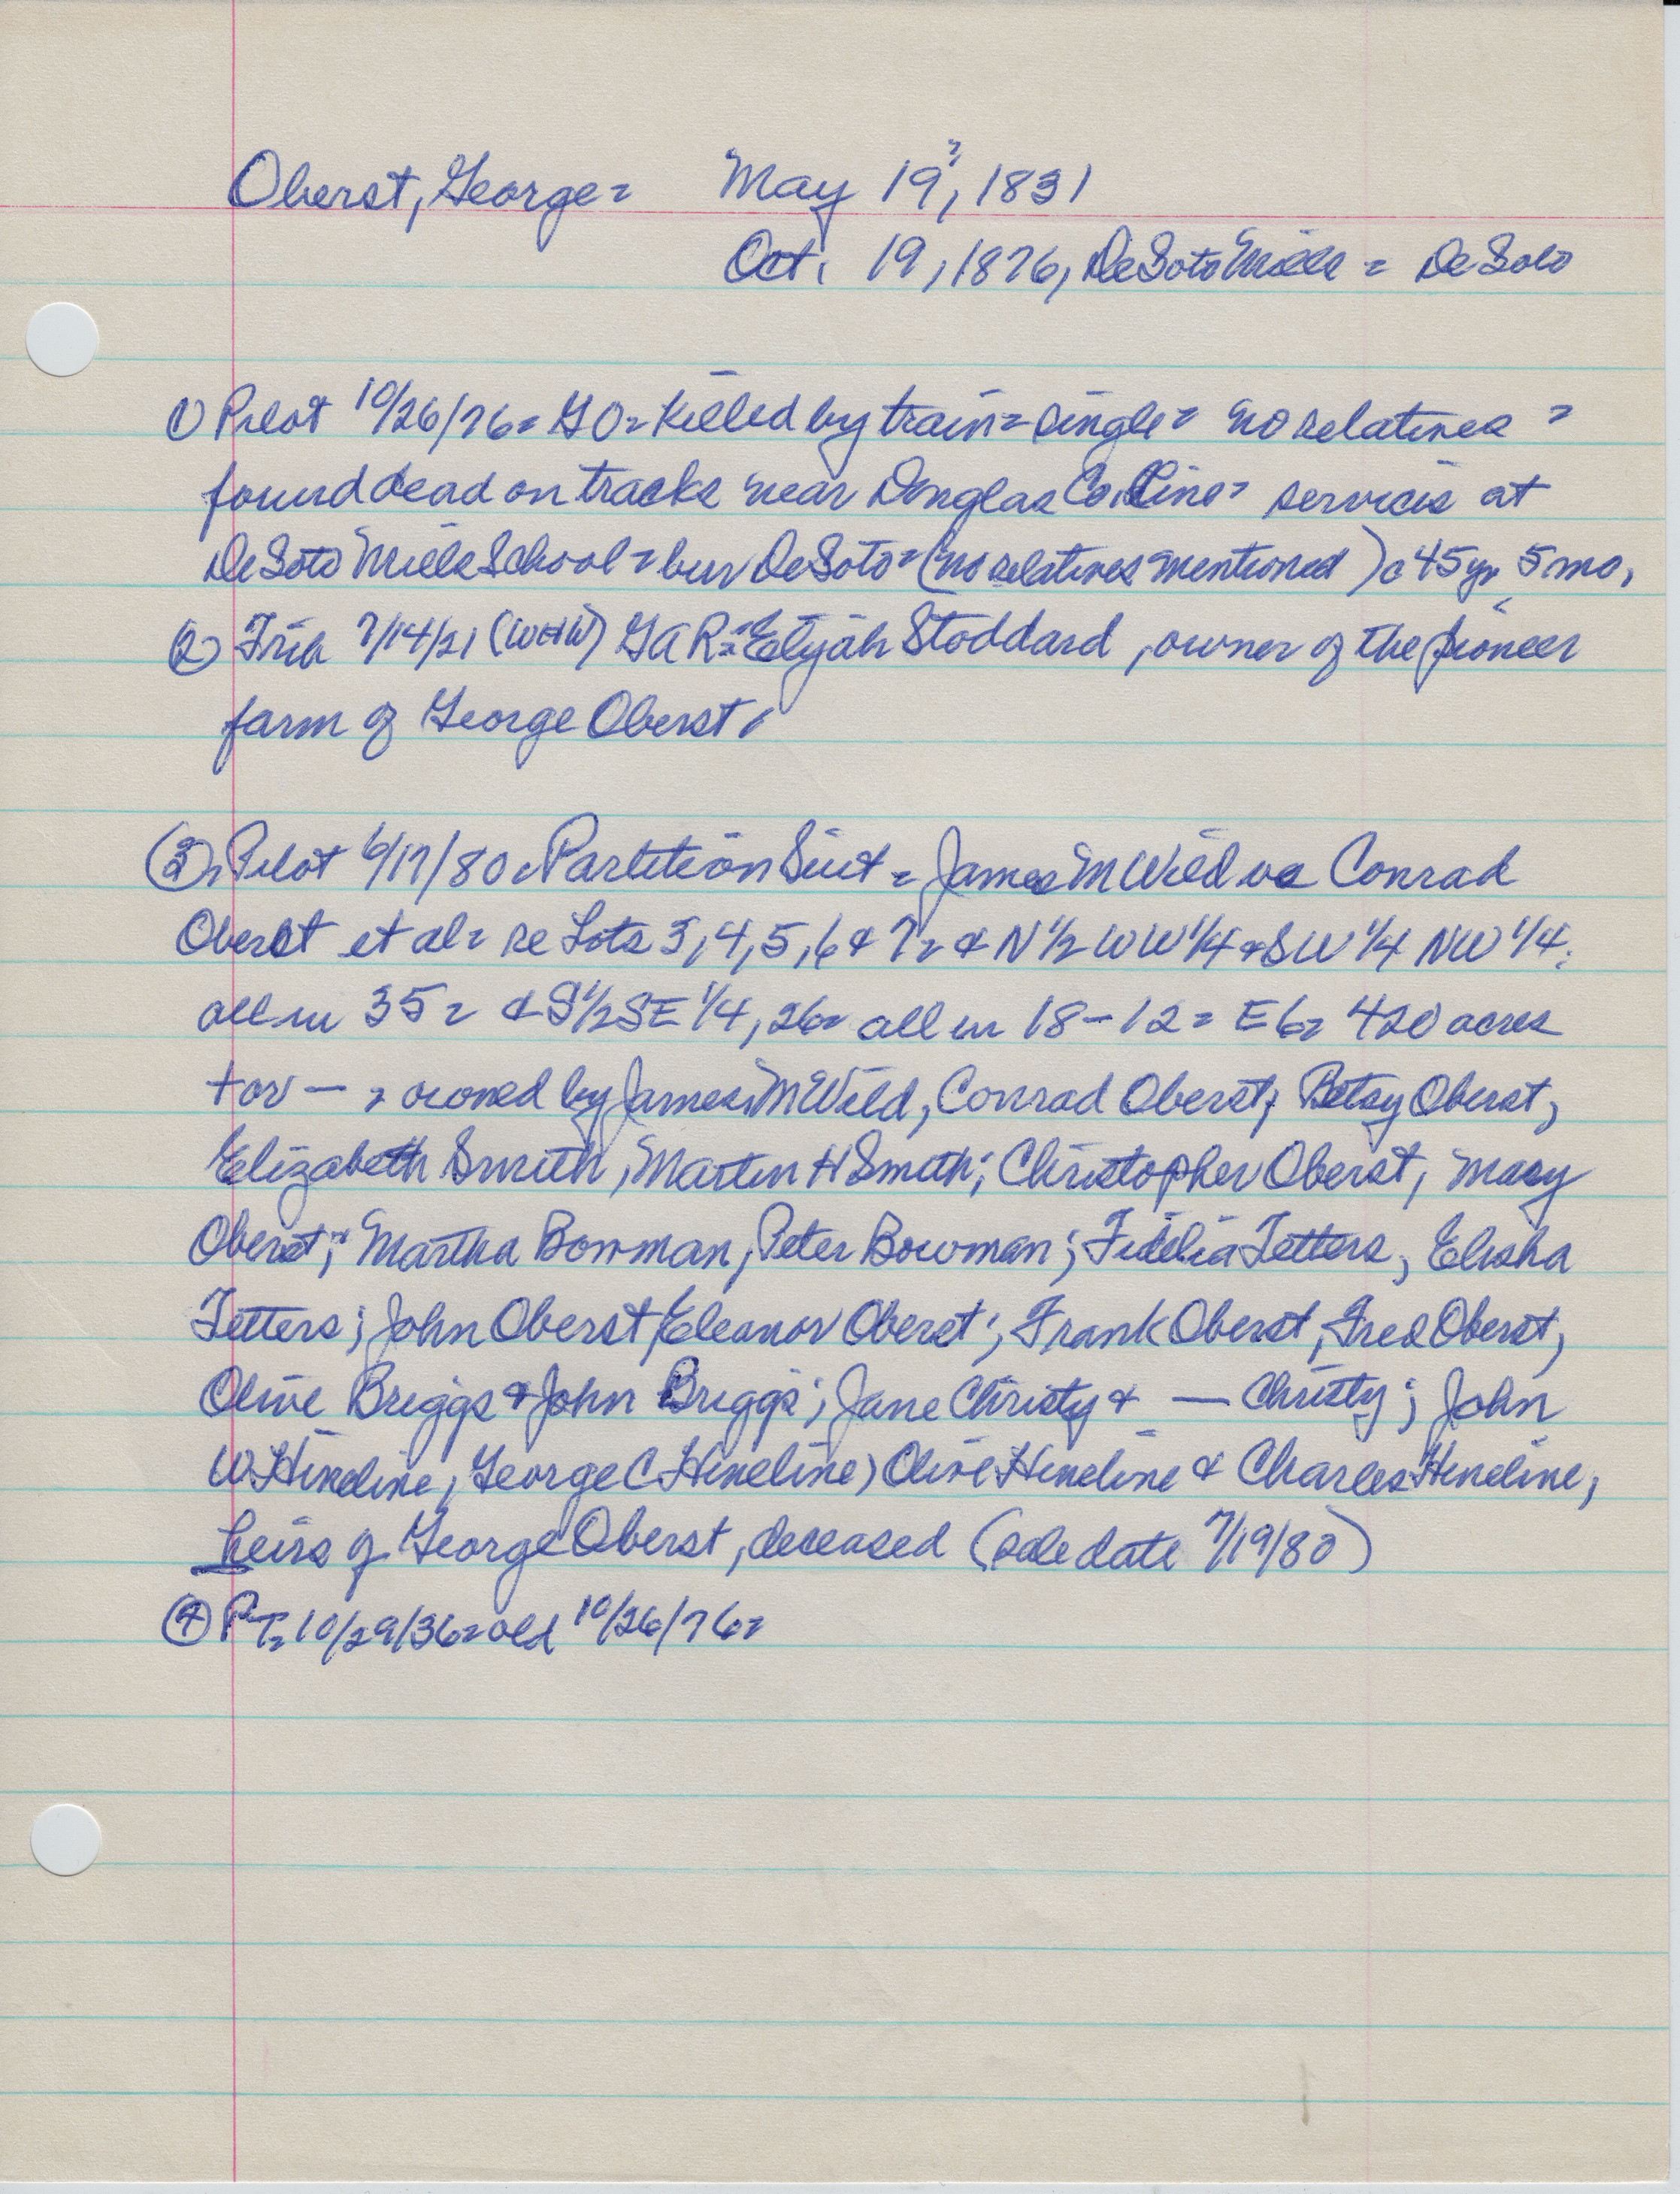 Oberst, George = May 19?, 1831
Oct. 19, 1876, DeSoto Mills = DeSoto
① Pilot 10/26/76 = GO = Killed by train = single = no relatives =
found dead on tracks near Douglas Co. Line = services at
DeSoto Mills School = bur DeSoto = (no relatives mentioned) c 45 yr 5 mo.
② Trib 7/14/21 (WHW) GAR = Elijah Stoddard, owner of the pioneer
farm of George Oberst.
③ Pilot 6/17/80 = Partition Suit = James M Wild vs Conrad
Oberst et al = re Lots 3, 4, 5, 6 & 7 = & N 1/2 WW 1/4 & SW 1/4 NW 1/4;
all in 35 = & S 1/2 SE 1/4, 26 = all in 18-12 = E6 = 420 acres
+ or - = owned by James M Wild, Conrad Oberst, Betsy Oberst,
Elizabeth Smith, Martin H Smith; Christopher Oberst, Mary
Oberst; Martha Bowman, Peter Bowman; Fidelia Tetters, Elisha
Tetters; John Oberst, Eleanor Oberst; Frank Oberst, Fred Oberst,
Olive Briggs & John Briggs; Jane Christy & — Christy; John
W. Hineline, George C Hineline, Olive Hineline & Charles Hineline,
heirs of George Oberst, deceased (sale date 7/19/80)
④ PT = 10/29/36 = old 10/26/76 =